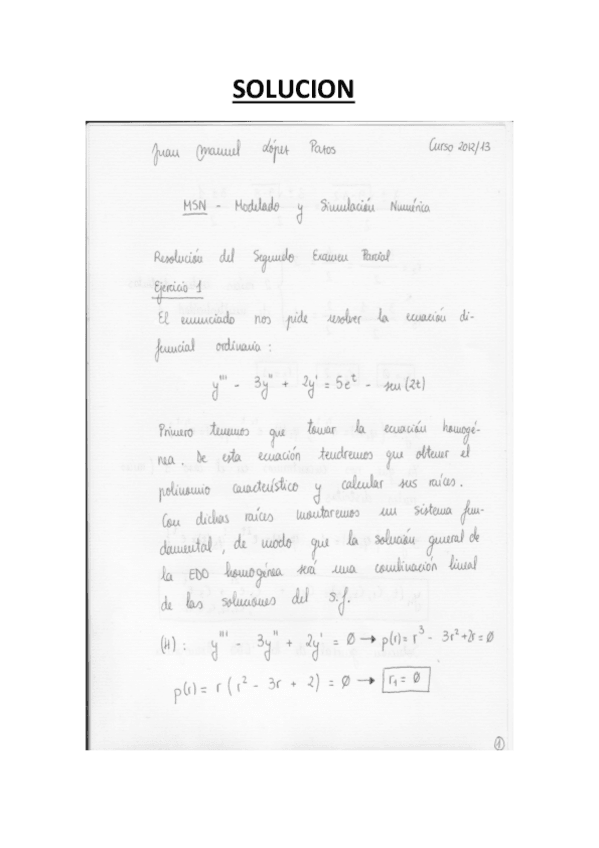 SOLUCION
Juan Manuel López Pazos Curso 2012/13
MSN - Modelado y Simulación Numérica
Resolución del Segundo Examen Parcial
Ejercicio 1
El enunciado nos pide resolver la ecuación di-
ferencial ordinaria:
y''' - 3y'' + 2y' = 5e^t - sen(2t)
Primero tenemos que tomar la ecuación homogé-
nea. De esta ecuación tendremos que obtener el
polinomio característico y calcular sus raíces.
Con dichas raíces montaremos un sistema fun-
damental, de modo que la solución general de
la EDO homogénea será una combinación lineal
de las soluciones del s.f.
(H): y''' - 3y'' + 2y' = Ø → p(r) = r³ - 3r² + 2r = Ø
p(r) = r (r² - 3r + 2) = Ø → r₁ = Ø
1